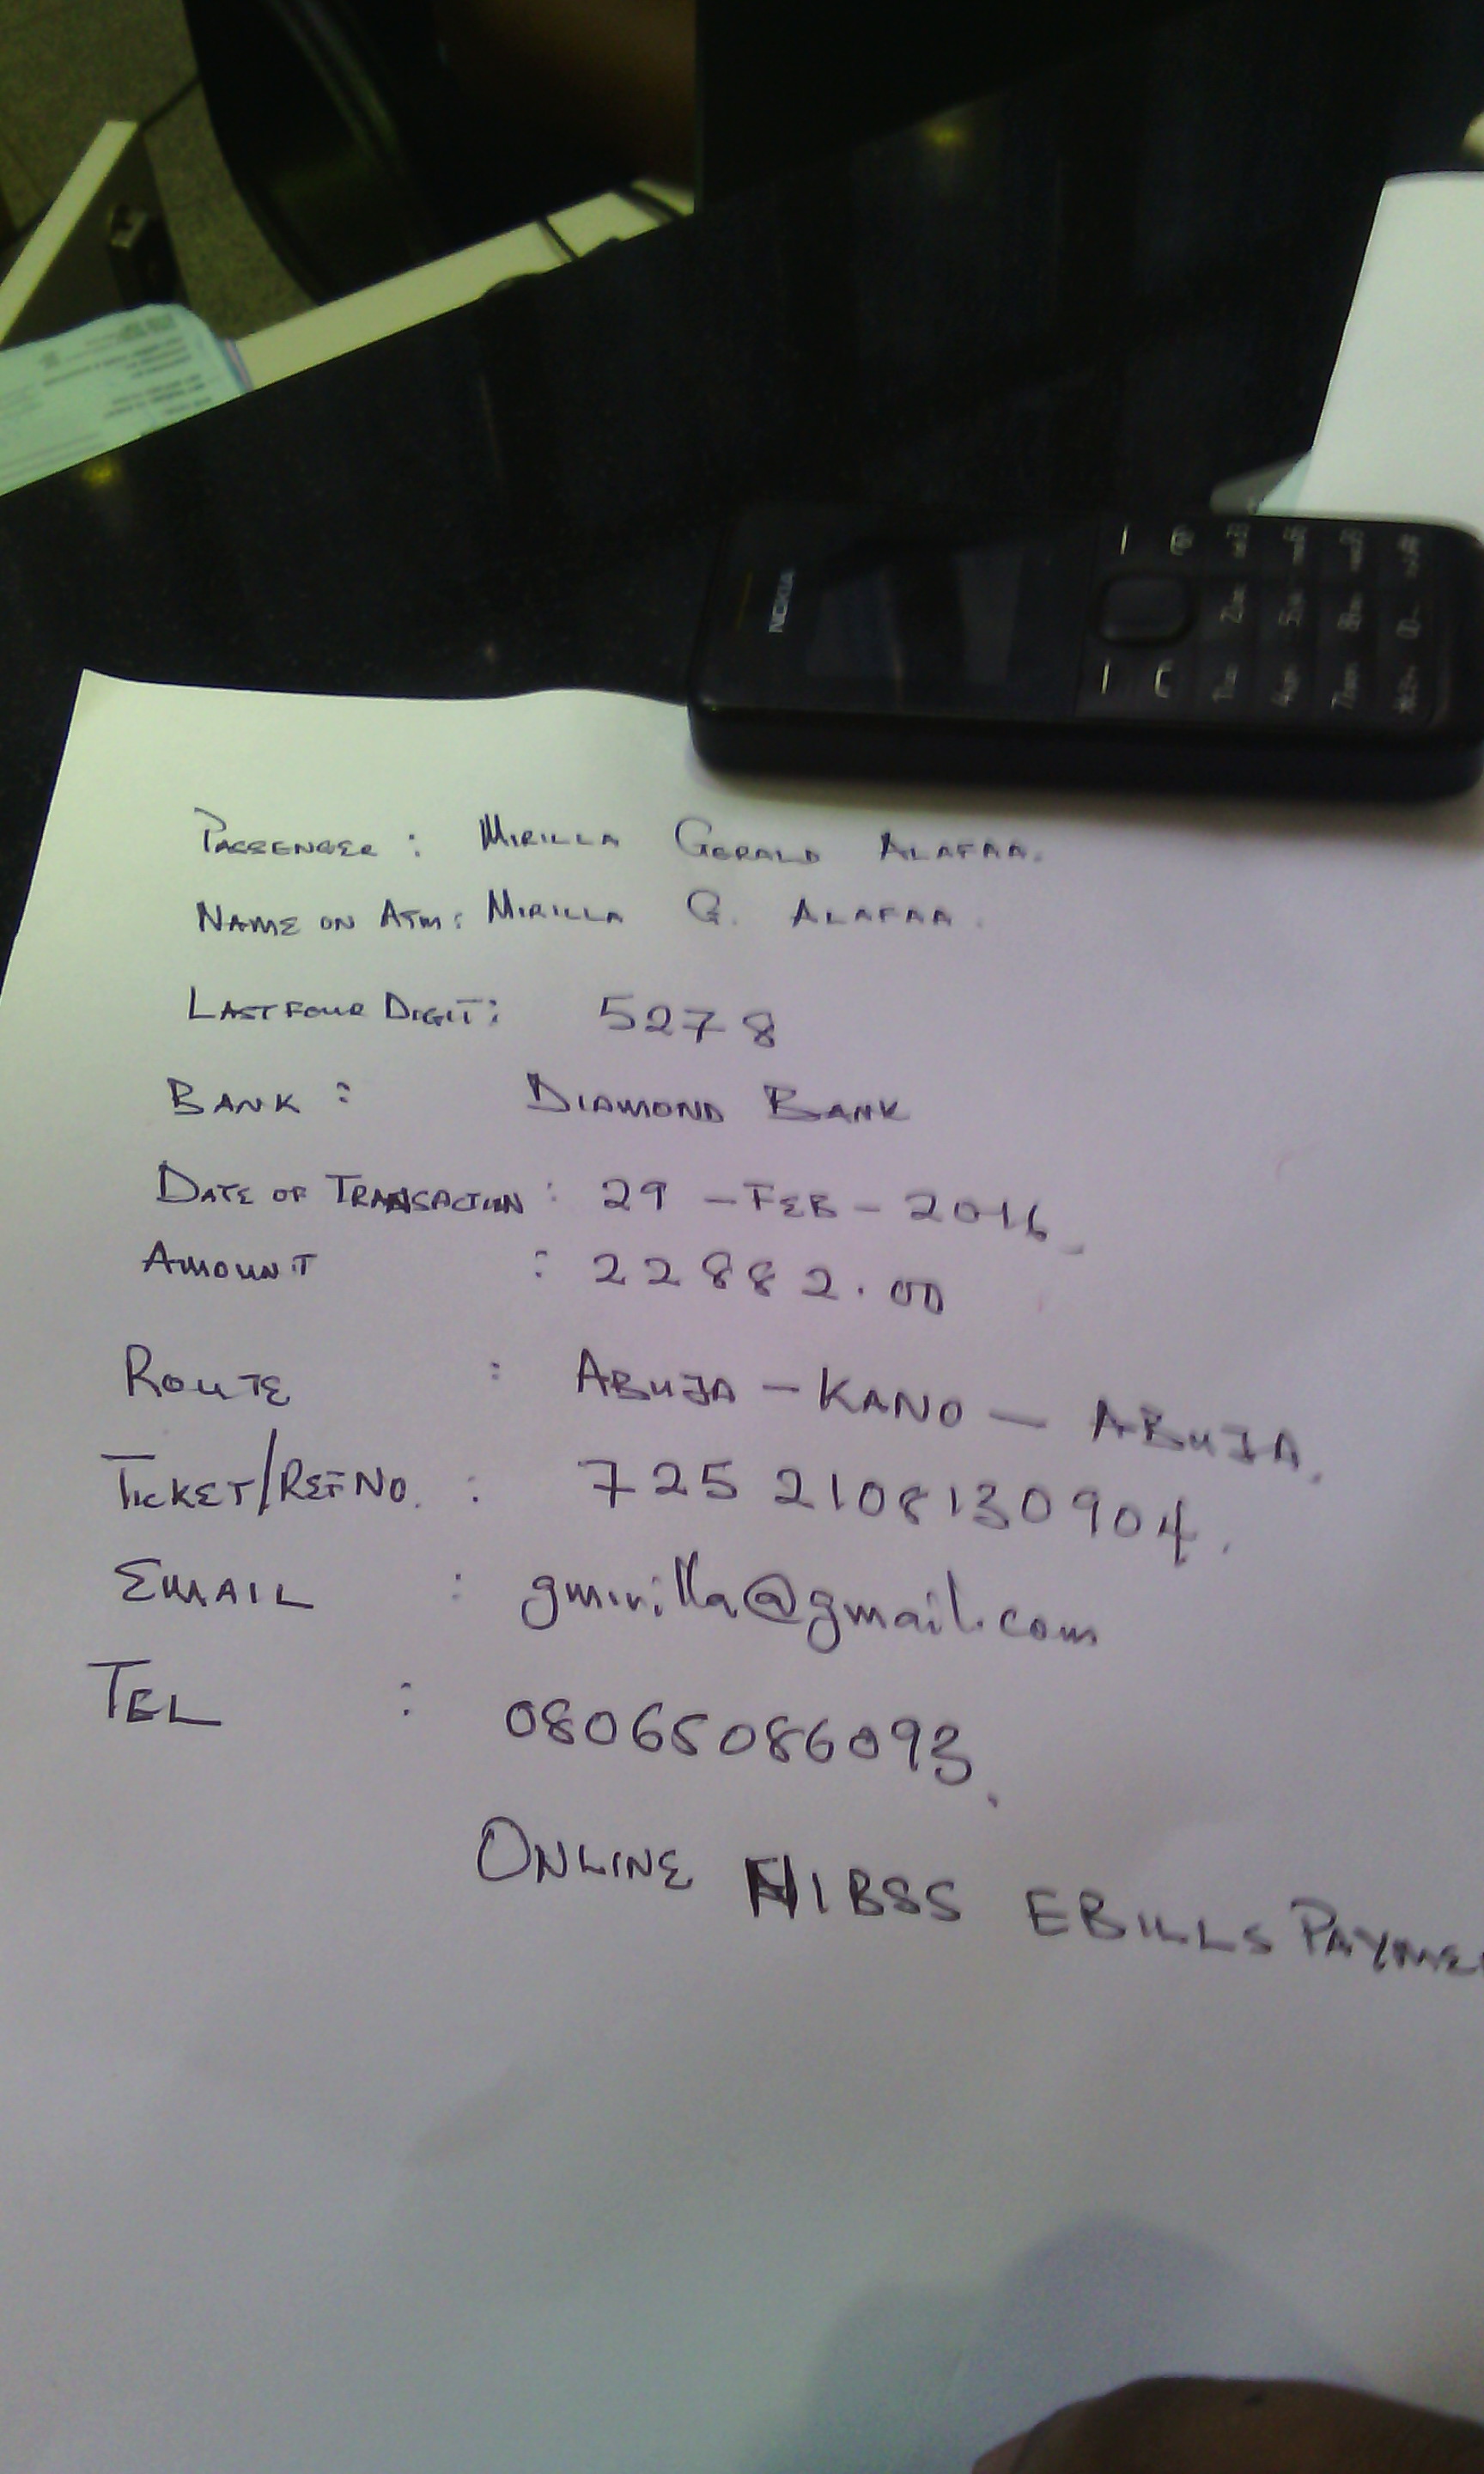 NOKIA
PASSENGER : MIRILLA GERALD ALAFAA.
NAME ON ATM : MIRILLA G. ALAFAA.
LAST FOUR DIGIT : 5278
BANK : DIAMOND BANK
DATE OF TRANSACTION : 29 - FEB - 2016.
AMOUNT : 22882.00
ROUTE : ABUJA - KANO - ABUJA.
TICKET/REF NO. : 725 2108130904.
EMAIL : gmirilla@gmail.com
TEL : 08065086093.
ONLINE NIBSS EBILLS PAYME